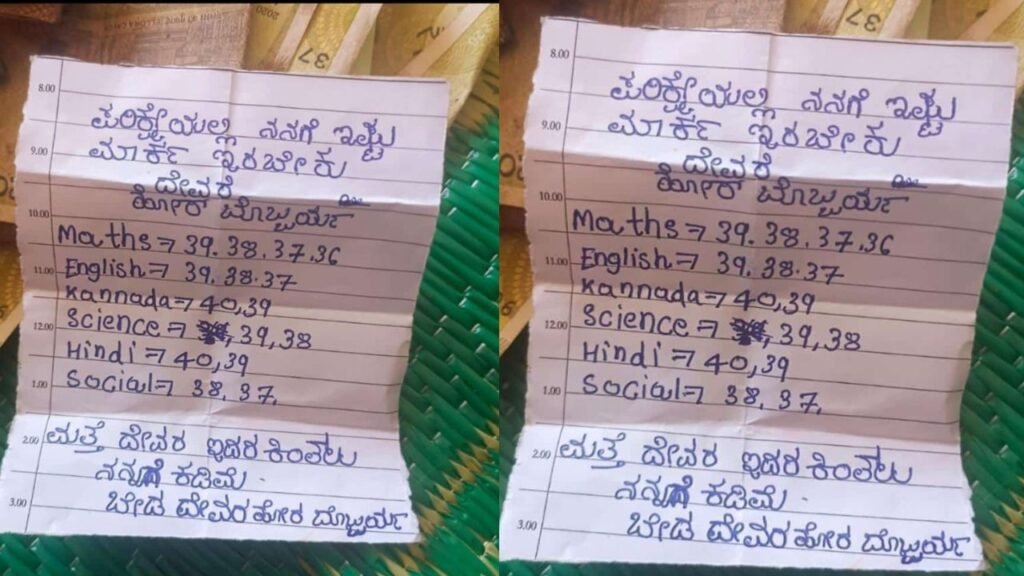 37
8.00
ಪರಿಕ್ಷೇಯಲ್ಲಿ ನನಗೆ ಇಷ್ಟು
9.00 ಮಾರ್ಕ್ ಇರಬೇಕು
ದೇವರೆ
10.00 ಹೋರ್ ಬೊಬ್ಬರ್ಯ
Maths = 39.38.37.36
11.00 English = 39.38.37
Kannada = 40,39
12.00 Science = 39,38
Hindi = 40,39
1.00 Social = 38.37.
2.00 ಮತ್ತೆ ದೇವರ ಇದರ ಕಿಂತಲು
ನನಗೆ ಕಡಿಮೆ.
3.00 ಬೇಡ ದೇವರ ಹೋರ ಬೊಬ್ಬರ್ಯ
37
8.00
ಪರಿಕ್ಷೇಯಲ್ಲಿ ನನಗೆ ಇಷ್ಟು
9.00 ಮಾರ್ಕ್ ಇರಬೇಕು
ದೇವರೆ
10.00 ಹೋರ್ ಬೊಬ್ಬರ್ಯ
Maths = 39.38.37.36
11.00 English = 39.38.37
Kannada = 40,39
12.00 Science = 39,38
Hindi = 40,39
1.00 Social = 38.37.
2.00 ಮತ್ತೆ ದೇವರ ಇದರ ಕಿಂತಲು
ನನಗೆ ಕಡಿಮೆ.
3.00 ಬೇಡ ದೇವರ ಹೋರ ಬೊಬ್ಬರ್ಯ